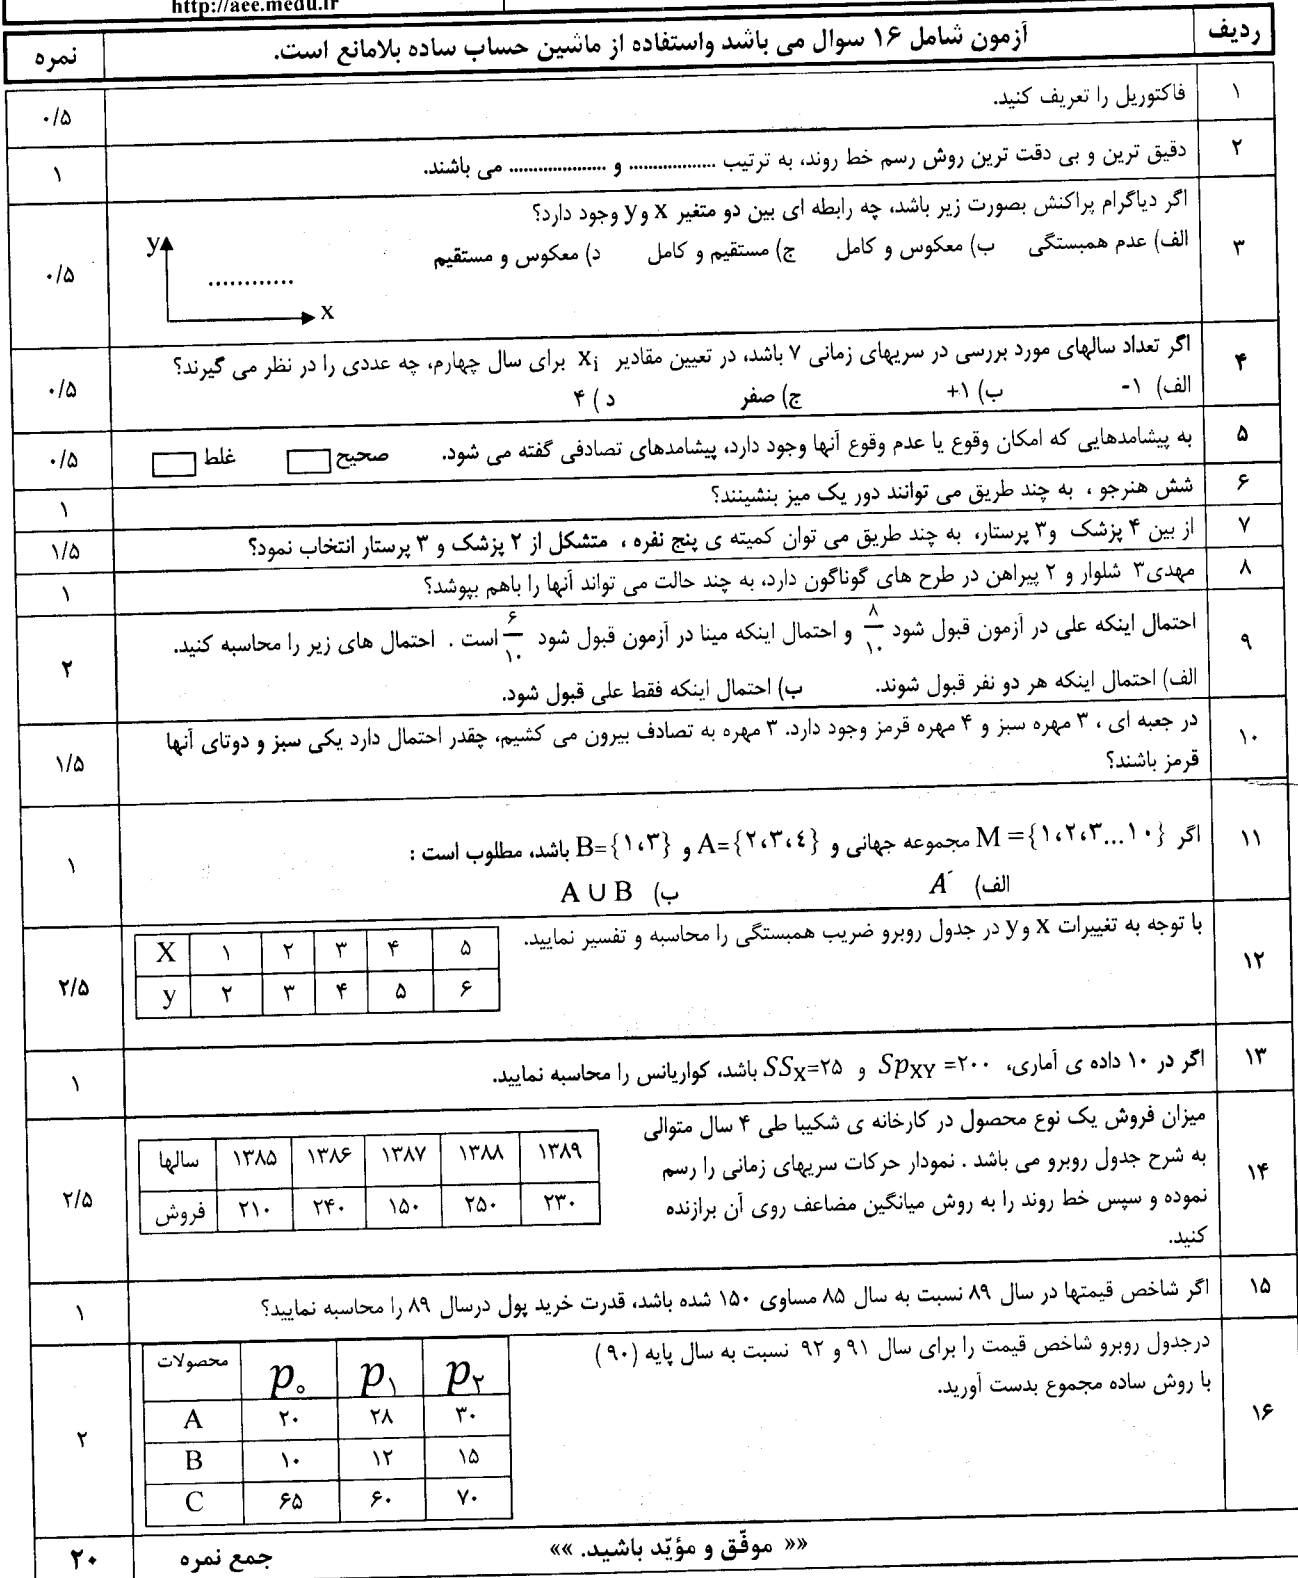 http://aee.medu.ir
ردیف آزمون شامل ۱۶ سوال می باشد واستفاده از ماشین حساب ساده بلامانع است. نمره
۱ فاکتوریل را تعریف کنید. ۰/۵
۲ دقیق ترین و بی دقت ترین روش رسم خط روند، به ترتیب .................. و .................... می باشند. ۱
۳ اگر دیاگرام پراکنش بصورت زیر باشد، چه رابطه ای بین دو متغیر x و y وجود دارد؟
الف) عدم همبستگی ب) معکوس و کامل ج) مستقیم و کامل د) معکوس و مستقیم ۰/۵
y
............
x
۴ اگر تعداد سالهای مورد بررسی در سریهای زمانی ۷ باشد، در تعیین مقادیر xi برای سال چهارم، چه عددی را در نظر می گیرند؟
الف) ۱- ب) ۱+ ج) صفر د) ۴ ۰/۵
۵ به پیشامدهایی که امکان وقوع یا عدم وقوع آنها وجود دارد، پیشامدهای تصادفی گفته می شود. صحیح غلط ۰/۵
۶ شش هنرجو ، به چند طریق می توانند دور یک میز بنشینند؟ ۱
۷ از بین ۴ پزشک و۳ پرستار، به چند طریق می توان کمیته ی پنج نفره ، متشکل از ۲ پزشک و ۳ پرستار انتخاب نمود؟ ۱/۵
۸ مهدی۳ شلوار و ۲ پیراهن در طرح های گوناگون دارد، به چند حالت می تواند آنها را باهم بپوشد؟ ۱
۹ احتمال اینکه علی در آزمون قبول شود ۸/۱۰ و احتمال اینکه مینا در آزمون قبول شود ۶/۱۰ است . احتمال های زیر را محاسبه کنید.
الف) احتمال اینکه هر دو نفر قبول شوند. ب) احتمال اینکه فقط علی قبول شود. ۲
۱۰ در جعبه ای ، ۳ مهره سبز و ۴ مهره قرمز وجود دارد. ۳ مهره به تصادف بیرون می کشیم، چقدر احتمال دارد یکی سبز و دوتای آنها
قرمز باشند؟ ۱/۵
۱۱ اگر M = {۱،۲،۳...۱۰} مجموعه جهانی و A={۲،۳،٤} و B={۱،۳} باشد، مطلوب است : ۱
الف) A´ ب) A ∪ B
۱۲ با توجه به تغییرات x و y در جدول روبرو ضریب همبستگی را محاسبه و تفسیر نمایید. ۲/۵
X ۱ ۲ ۳ ۴ ۵
y ۲ ۳ ۴ ۵ ۶
۱۳ اگر در ۱۰ داده ی آماری، SpXY =۲۰۰ و SSX=۲۵ باشد، کواریانس را محاسبه نمایید. ۱
۱۴ میزان فروش یک نوع محصول در کارخانه ی شکیبا طی ۴ سال متوالی
به شرح جدول روبرو می باشد . نمودار حرکات سریهای زمانی را رسم
نموده و سپس خط روند را به روش میانگین مضاعف روی آن برازنده
کنید. ۲/۵
سالها ۱۳۸۵ ۱۳۸۶ ۱۳۸۷ ۱۳۸۸ ۱۳۸۹
فروش ۲۱۰ ۲۴۰ ۱۵۰ ۲۵۰ ۲۳۰
۱۵ اگر شاخص قیمتها در سال ۸۹ نسبت به سال ۸۵ مساوی ۱۵۰ شده باشد، قدرت خرید پول درسال ۸۹ را محاسبه نمایید؟ ۱
۱۶ درجدول روبرو شاخص قیمت را برای سال ۹۱ و ۹۲ نسبت به سال پایه (۹۰)
با روش ساده مجموع بدست آورید. ۲
محصولات p۰ p۱ p۲
A ۲۰ ۲۸ ۳۰
B ۱۰ ۱۲ ۱۵
C ۶۵ ۶۰ ۷۰
«« موفّق و مؤیّد باشید. »» جمع نمره ۲۰